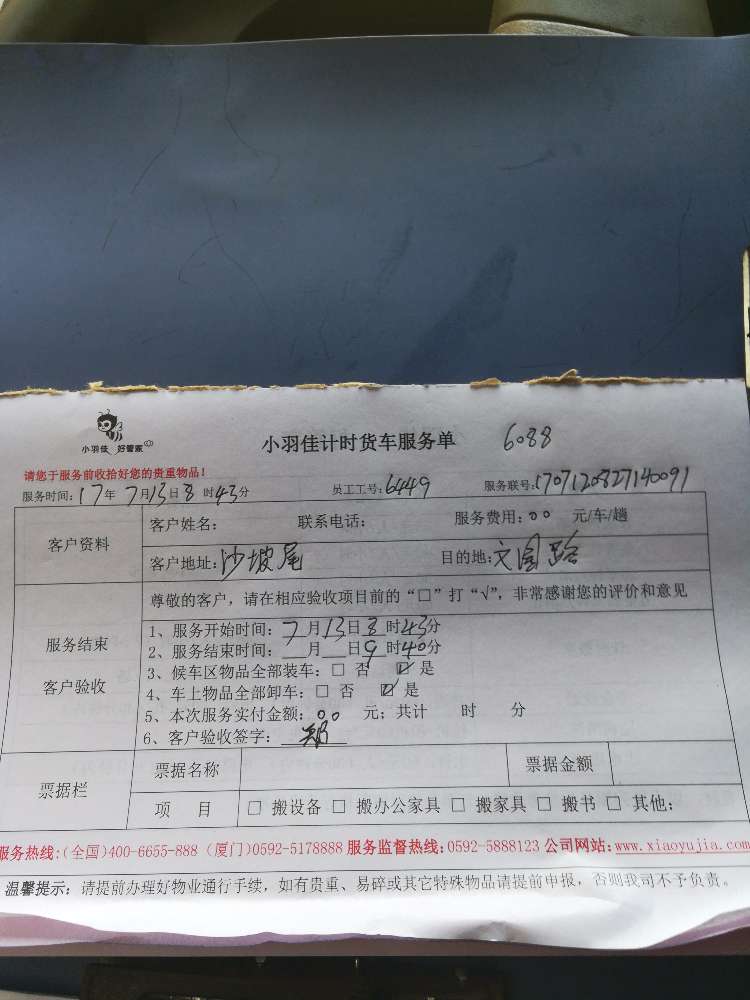 小羽佳 好管家
小羽佳计时货车服务单 6088
请您于服务前收拾好您的贵重物品！
服务时间：17年7月13日8时43分 员工工号：6449 服务联号：1707120827140091
客户资料
客户姓名： 联系电话： 服务费用：00 元/车/趟
客户地址：沙坡尾 目的地：文园路
服务结束
客户验收
尊敬的客户，请在相应验收项目前的“□”打“√”，非常感谢您的评价和意见
1、服务开始时间：7月13日8时43分
2、服务结束时间： 月 日9时40分
3、候车区物品全部装车：□ 否 ☑ 是
4、车上物品全部卸车：□ 否 ☑ 是
5、本次服务实付金额：00 元；共计 时 分
6、客户验收签字：郑
票据栏
票据名称 票据金额
项 目 □ 搬设备 □ 搬办公家具 □ 搬家具 □ 搬书 □ 其他：
服务热线:(全国)400-6655-888 (厦门)0592-5178888 服务监督热线:0592-5888123 公司网站:www.xiaoyujia.com
温馨提示：请提前办理好物业通行手续，如有贵重、易碎或其它特殊物品请提前申报，否则我司不予负责。